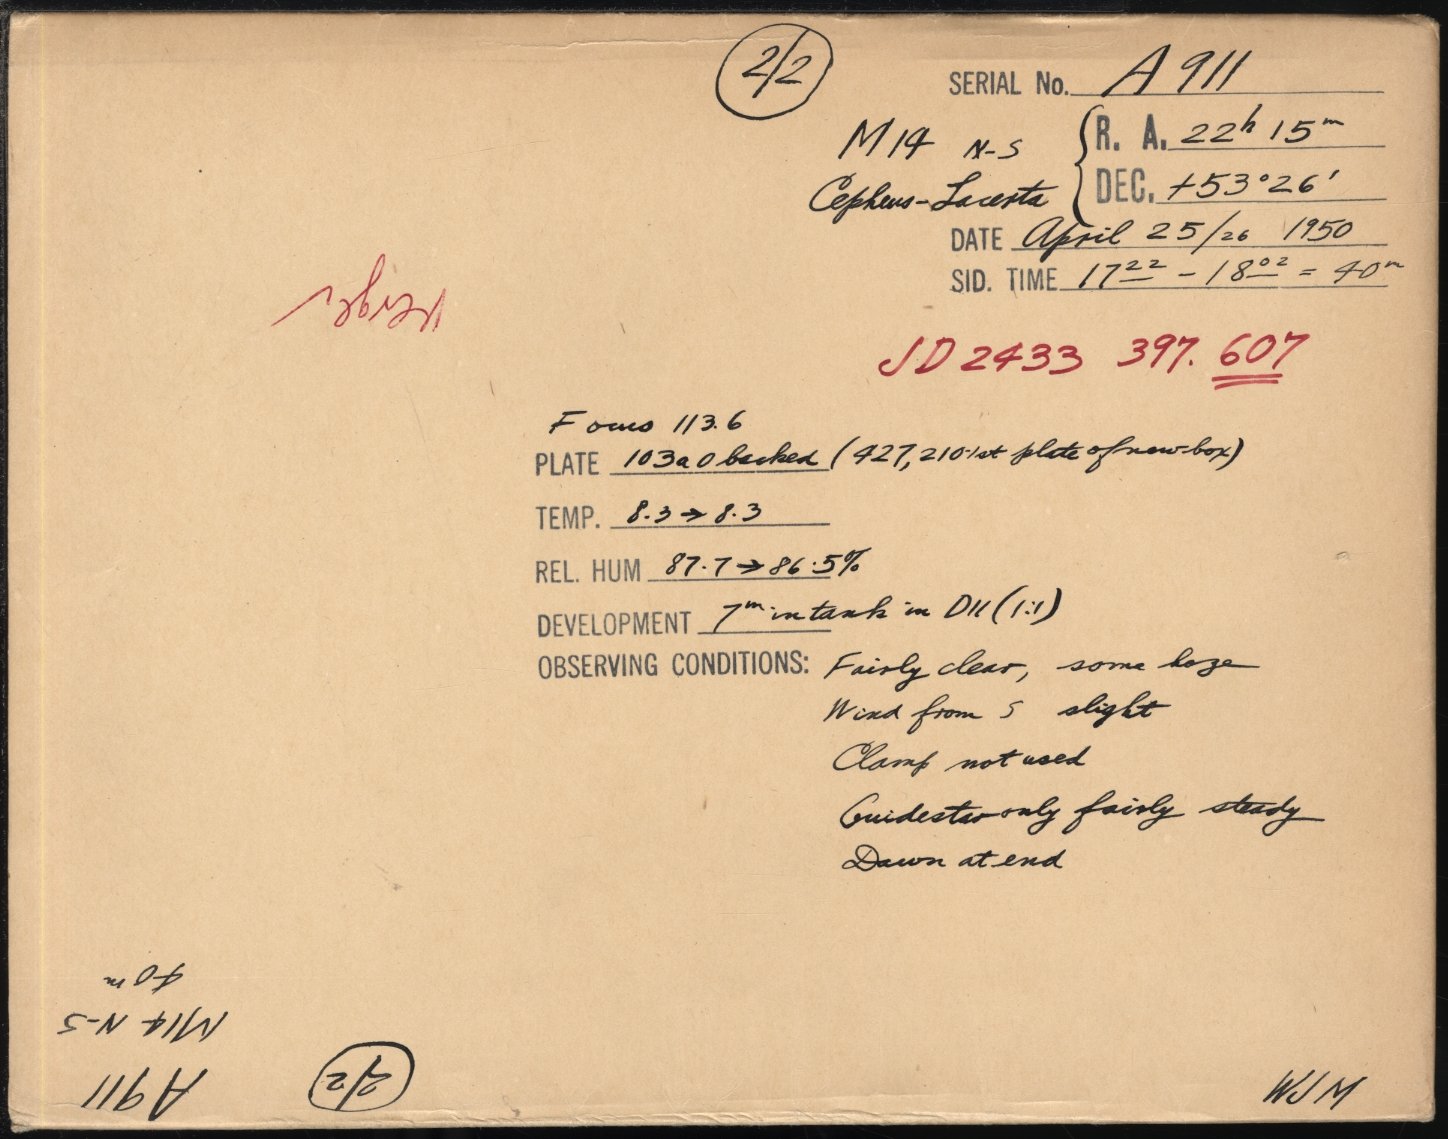 2/2
SERIAL No. A 911
M14 N-S { R. A. 22h 15m
Cepheus-Lacerta DEC. +53°26'
DATE April 25/26 1950
SID. TIME 17 22 - 18 02 = 40m
JD 2433 397.607
Focus 113.6
PLATE 103a O backed (427,210 1st plate of new box)
TEMP. 8.3 → 8.3
REL. HUM 87.7 → 86.5%
DEVELOPMENT 7m in tank in D11 (1:1)
OBSERVING CONDITIONS: Fairly clear, some haze
Wind from S slight
Clamp not used
Guidestar only fairly steady
Dawn at end
40m
M14 N-S
A911
2/2
WJM